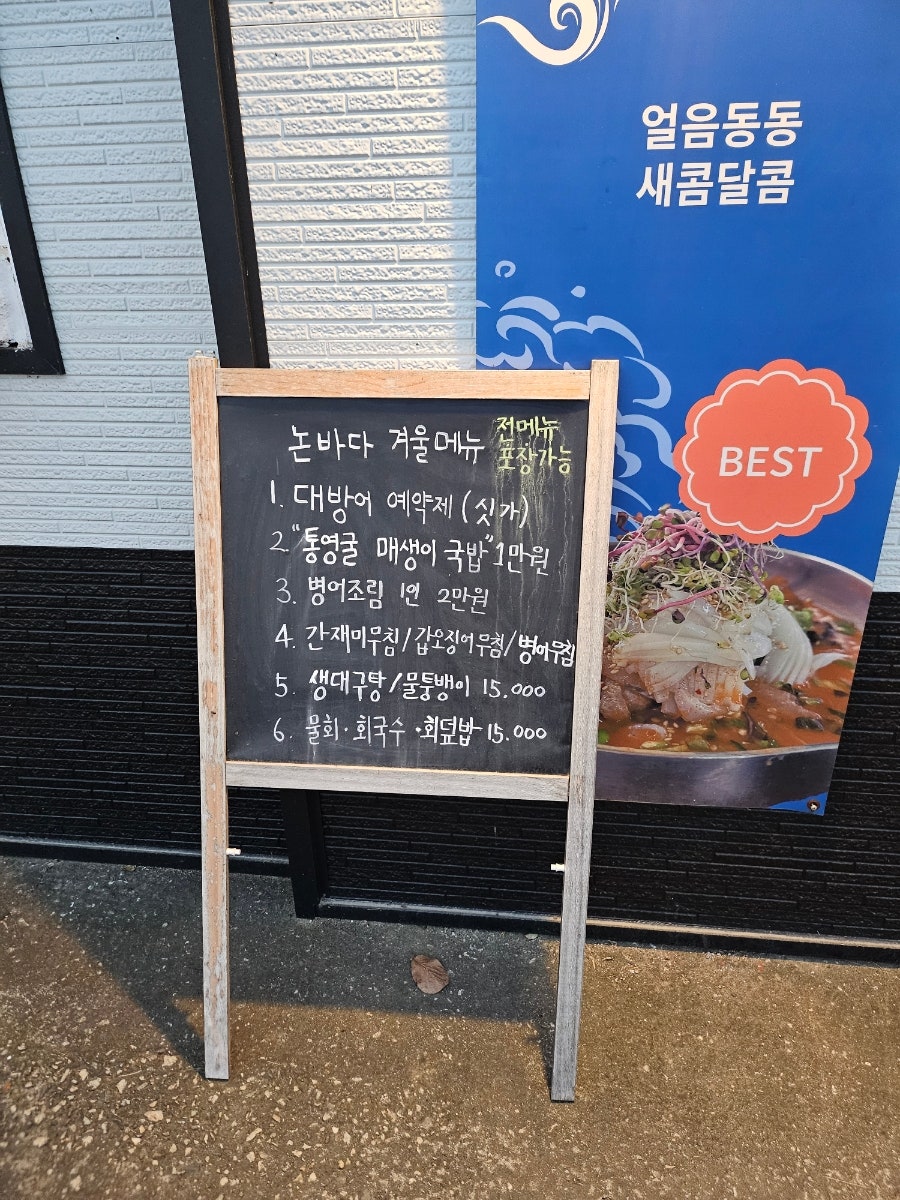 얼음동동
새콤달콤
BEST
논바다 겨울메뉴
전메뉴
포장가능
1. 대방어 예약제 (싯가)
2. "통영굴 매생이 국밥" 1만원
3. 병어조림 1인 2만원
4. 간재미무침/갑오징어무침/병어무침
5. 생대구탕/물퉁뱅이 15.000
6. 물회·회국수·회덮밥 15.000